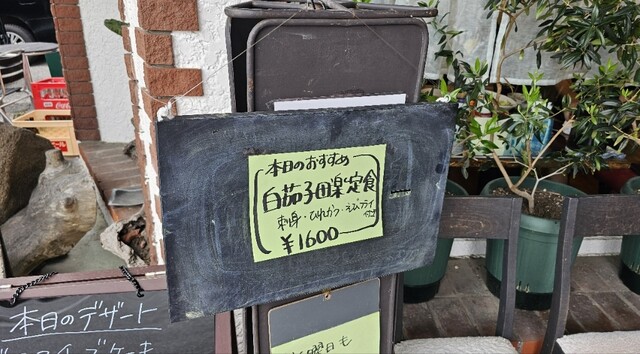 本日のおすすめ
白茄子田楽定食
刺身・ひれかつ・えびフライ
付き
¥1600
本日のデザート
曜日も